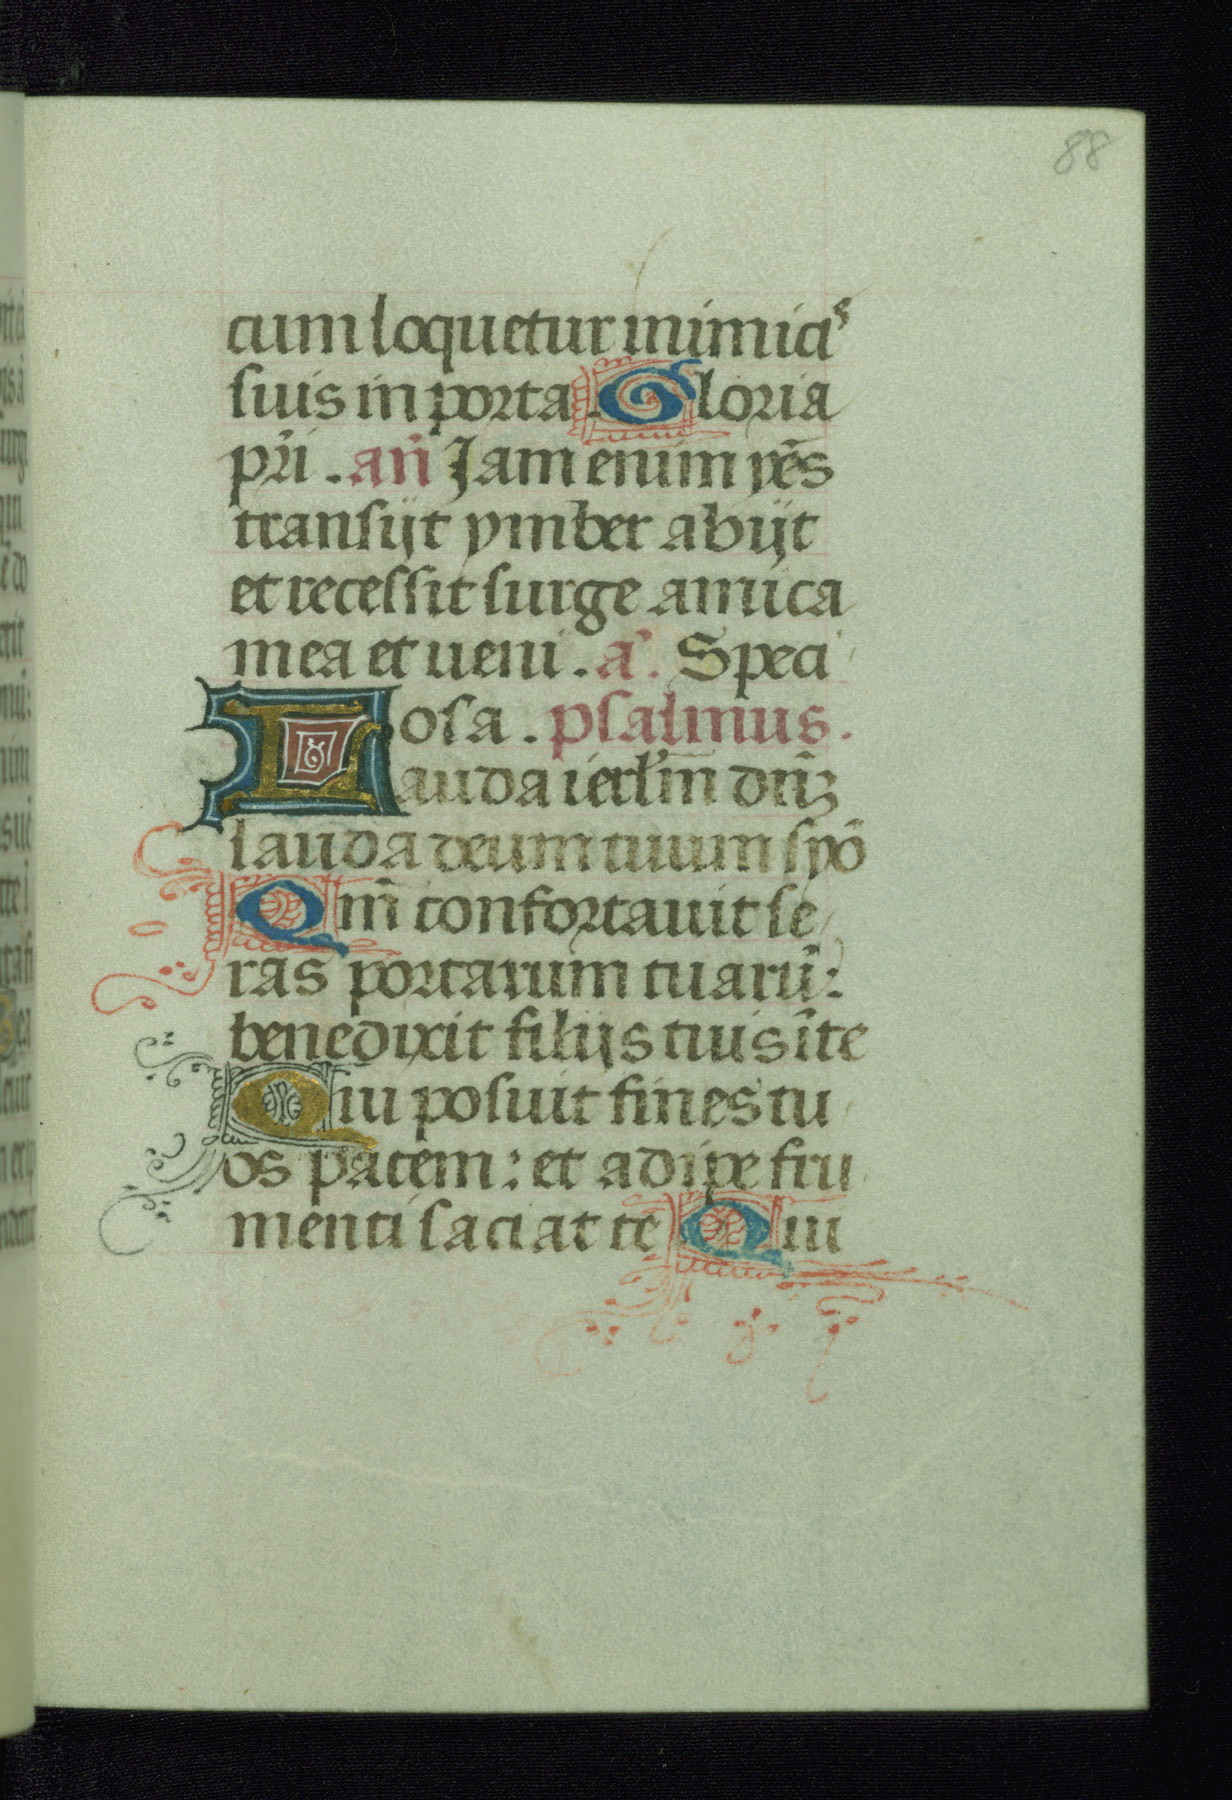 88
cum loquetur inimicis
suis in porta. Gloria
pr̄i. an̄ Jam enim yẽs
transijt ymber abijt
et recessit surge amica
mea et ueni. a. Speci
osa. psalmus.
Lauda ierl̄m dn̄ꝫ
lauda deum tuum syō
Qm̄ confortauit se
ras portarum tuarū:
benedixit filijs tuis ī te
Qui posuit fines tu
os pacem: et adipe fru
menti saciat te Qui